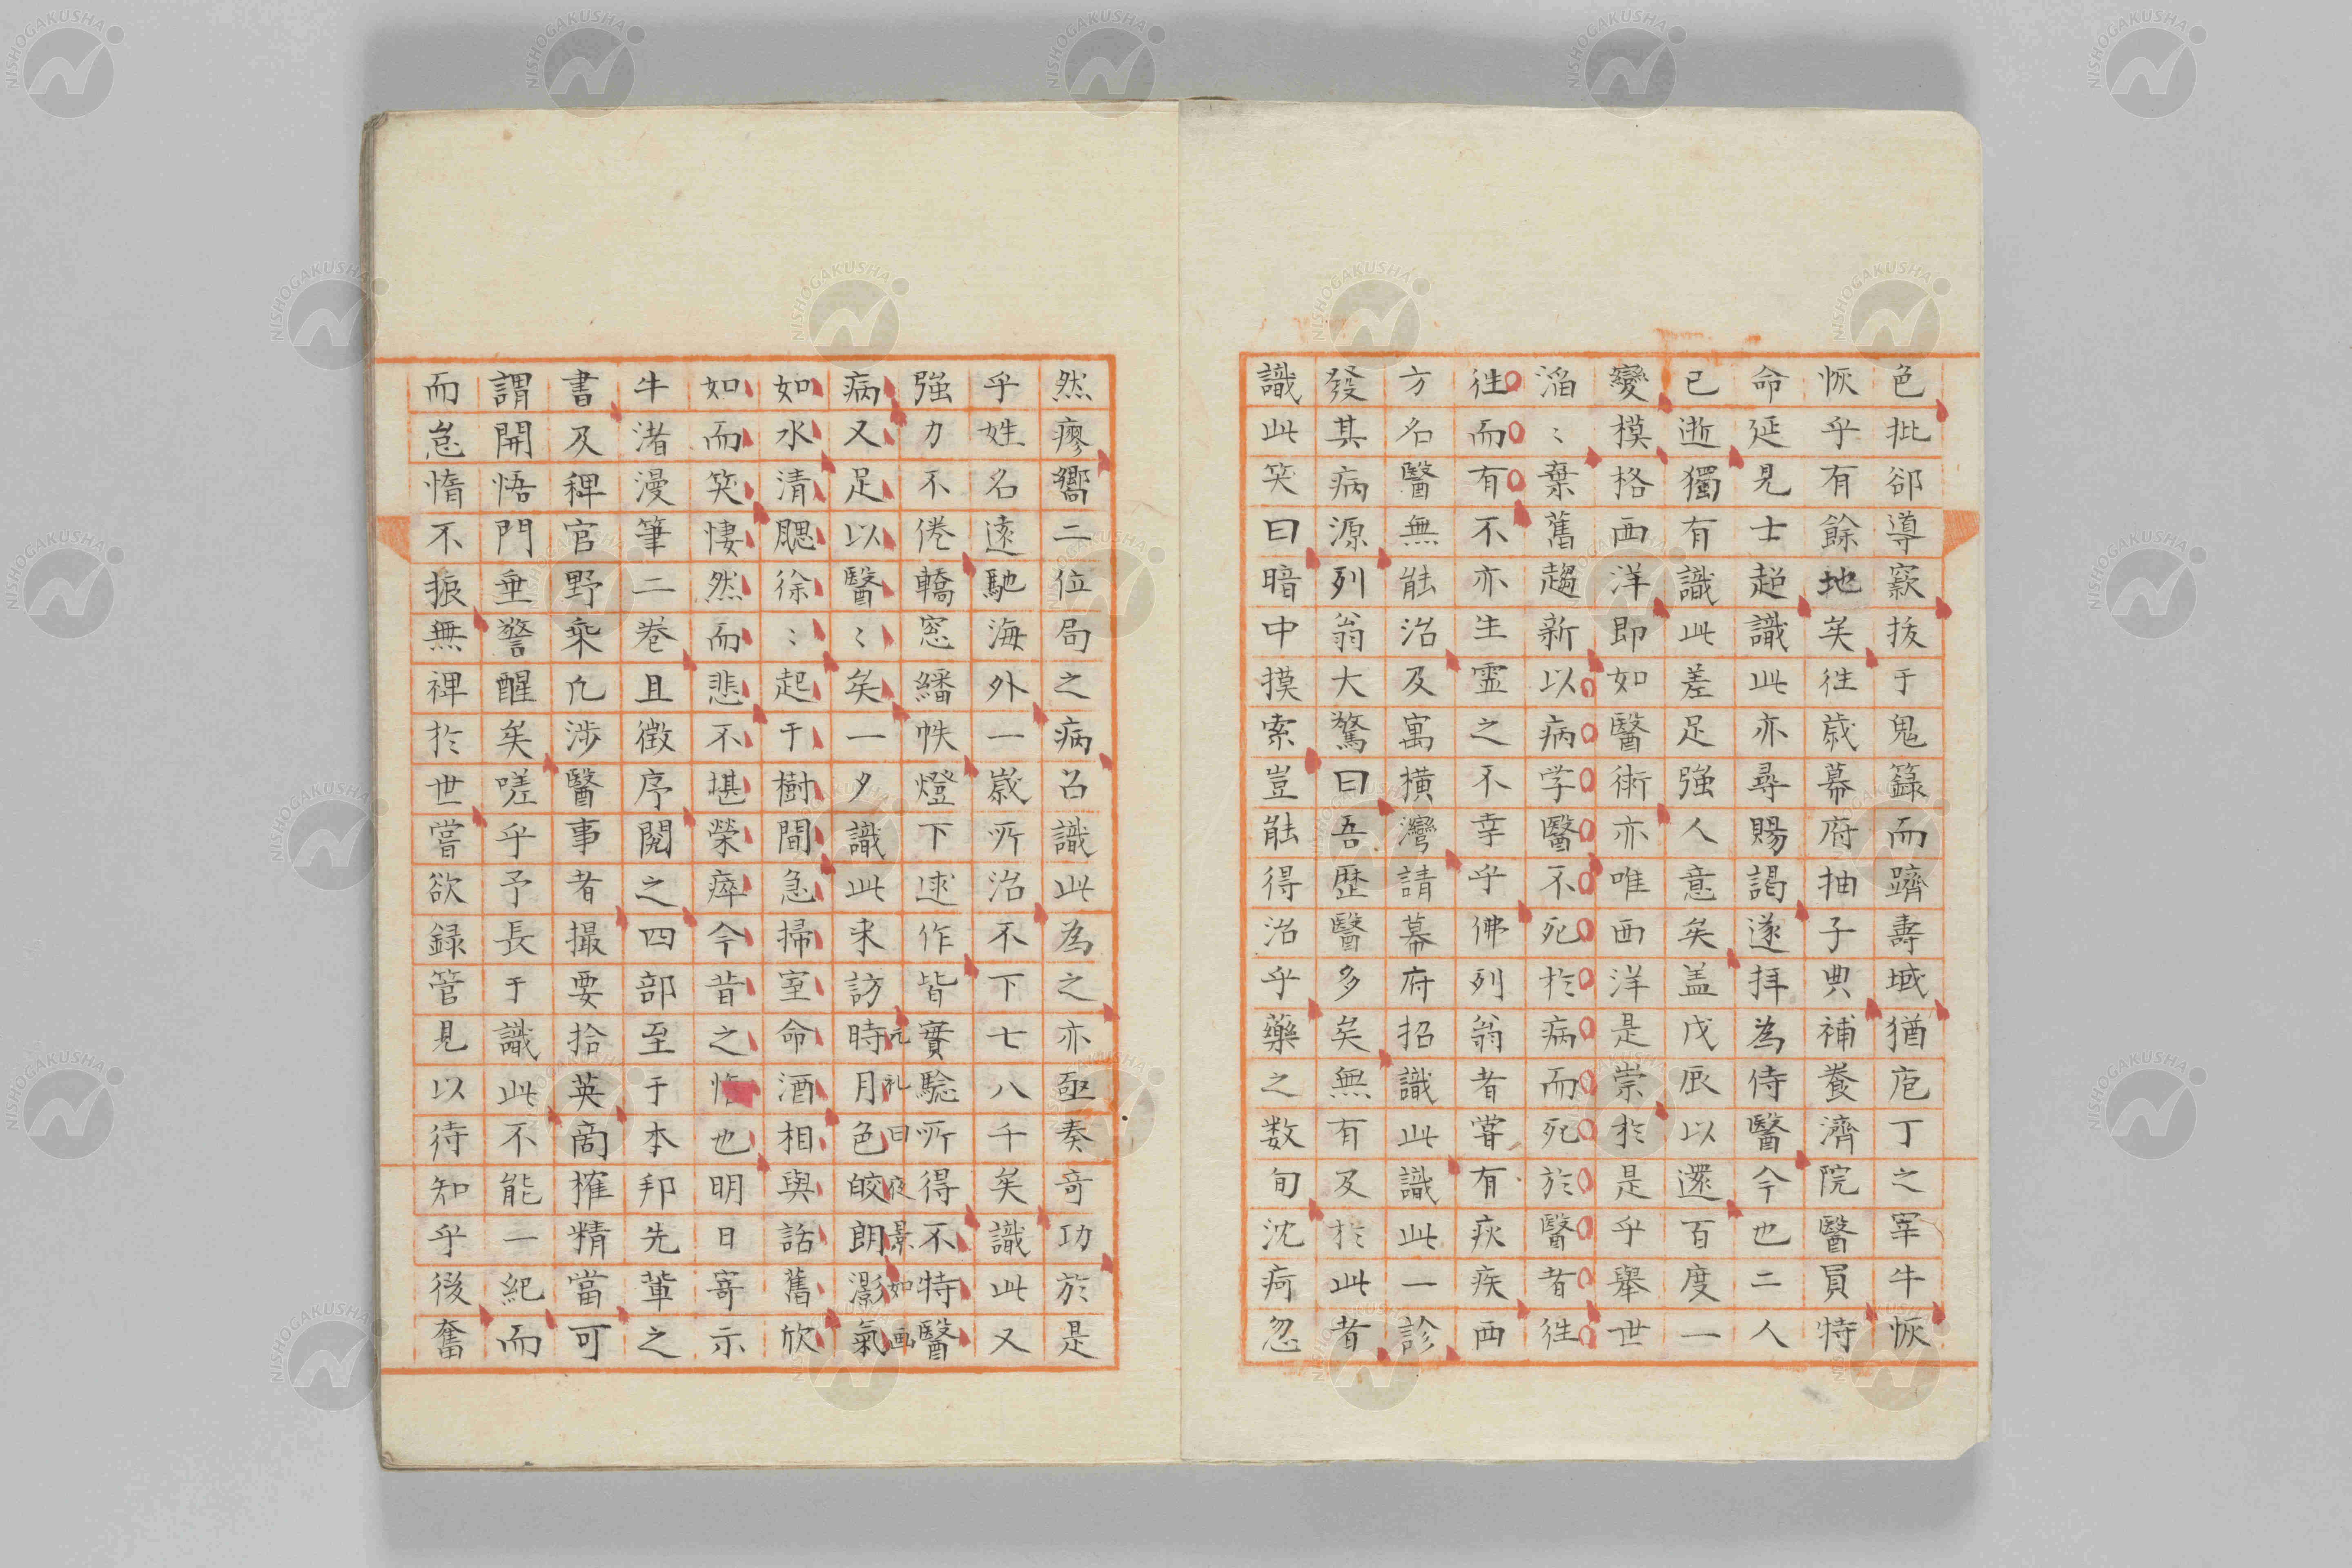 色批郤導窾抜于鬼籙而躋壽域猶庖丁之宰牛恢
恢乎有餘地矣徃歳幕府抽子典補養濟院醫員特
命延見士超識此亦尋賜謁遂拝為侍醫今也二人
已逝獨有識此差足強人意矣盖戊辰以還百度一
變模格西洋即如醫術亦唯西洋是崇於是乎舉世
滔〻棄舊趨新以病学醫不死於病而死於醫者徃
徃而有不亦生霊之不幸乎佛列翁者嘗有疢疾西
方名醫無能治及寓横灣請幕府招識此識此一診
發其病源列翁大驚曰吾歴醫多矣無有及於此者
識此笑曰暗中摸索豈能得治乎藥之数旬沈疴忽
然瘳嚮二位局之病召識此為之亦亟奏竒功於是
乎姓名遠馳海外一嵗所治不下七八千矣識此又
強力不倦轎窓繙帙燈下逑作皆實驗所得不特醫
病又足以醫〻矣一夕識此来訪時月色皎朗灝氣
元礼曰夜景如画
如水清飔徐〻起于樹間急掃室命酒相與話舊欣
如而笑悽然而悲不堪榮瘁今昔之也明日寄示
牛渚漫筆二巻且徴序閲之四部至于本邦先輩之
書及稗官野乘凢渉醫事者撮要拾英啇榷精當可
謂開悟門垂警醒矣嗟乎予長于識此不能一紀而
而怠惰不振無裨於世嘗欲録管見以待知乎後奮
NISHOGAKUSHA